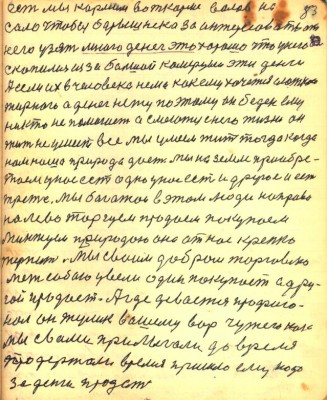 83
сет мы кормим откорми валов на
сало чтобы барышнека за интересовать от
него узят много денег это хорошо это ужно
скопились за большой деньги
А если их в человека нема как ему хочется
жирного а денег нету поэтому он беден ему
никто не поможет а смелому снего жизни он
жит не умеит все мы умеем жит тогда когда
нам наша природа дает. мы на земли приобре-
таем у нас ест одно у нас ест и другое и ест
третте. мы богатои в этом люди направо
налево торгуем продаем покупаем
природою она от нас крепко
терпит. Мы своим добром торговлю
меж собою увели один покупаит а дру-
гой продаёт. А где деваится профиго-
нал он жулик вашему вор чужего
мы с вами примечали до время
продержали время пришло ему надо
за денги продат